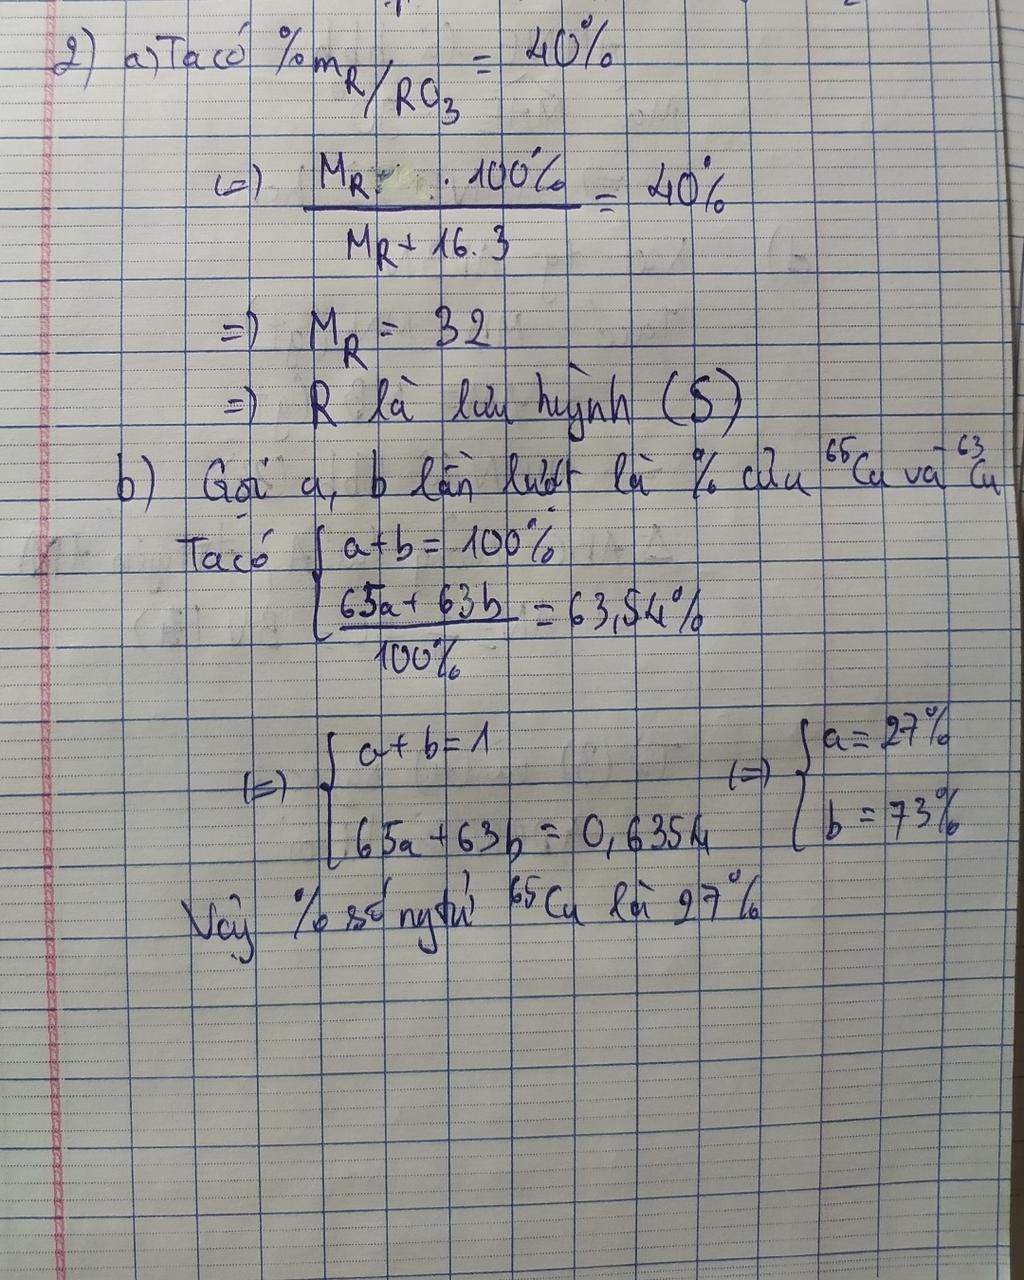 2) a) Ta có %mR/RO3 = 40%
(=) MR . 100% / MR + 16.3 = 40%
=) MR = 32
=) R là lưu huỳnh (S)
b) Gọi a, b lần lượt là % của ⁶⁵Cu và ⁶³Cu
Ta có { a+b = 100%
65a + 63b / 100% = 63,54%
(=) { a + b = 1
65a + 63b = 0,6354
(=) { a = 27%
b = 73%
Vậy % số ngtử ⁶⁵Cu là 27%